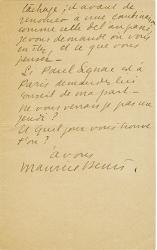 et avant de
renoncer à une
comme celle
vous demande où vous
en êtes, et ce que vous
pensez —
Si Paul Signac est à
Paris demandez lui
conseil de ma part —
ne vous verrais je pas un
jeudi ?
Et quel jour vous trouve
t'on ?
à vous
Maurice Denis.